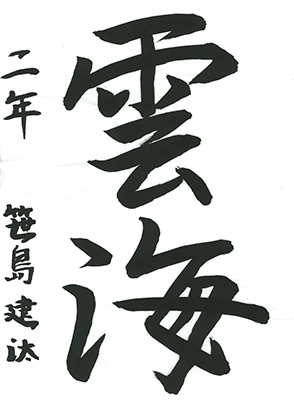 雲海
二年 笹島建汰